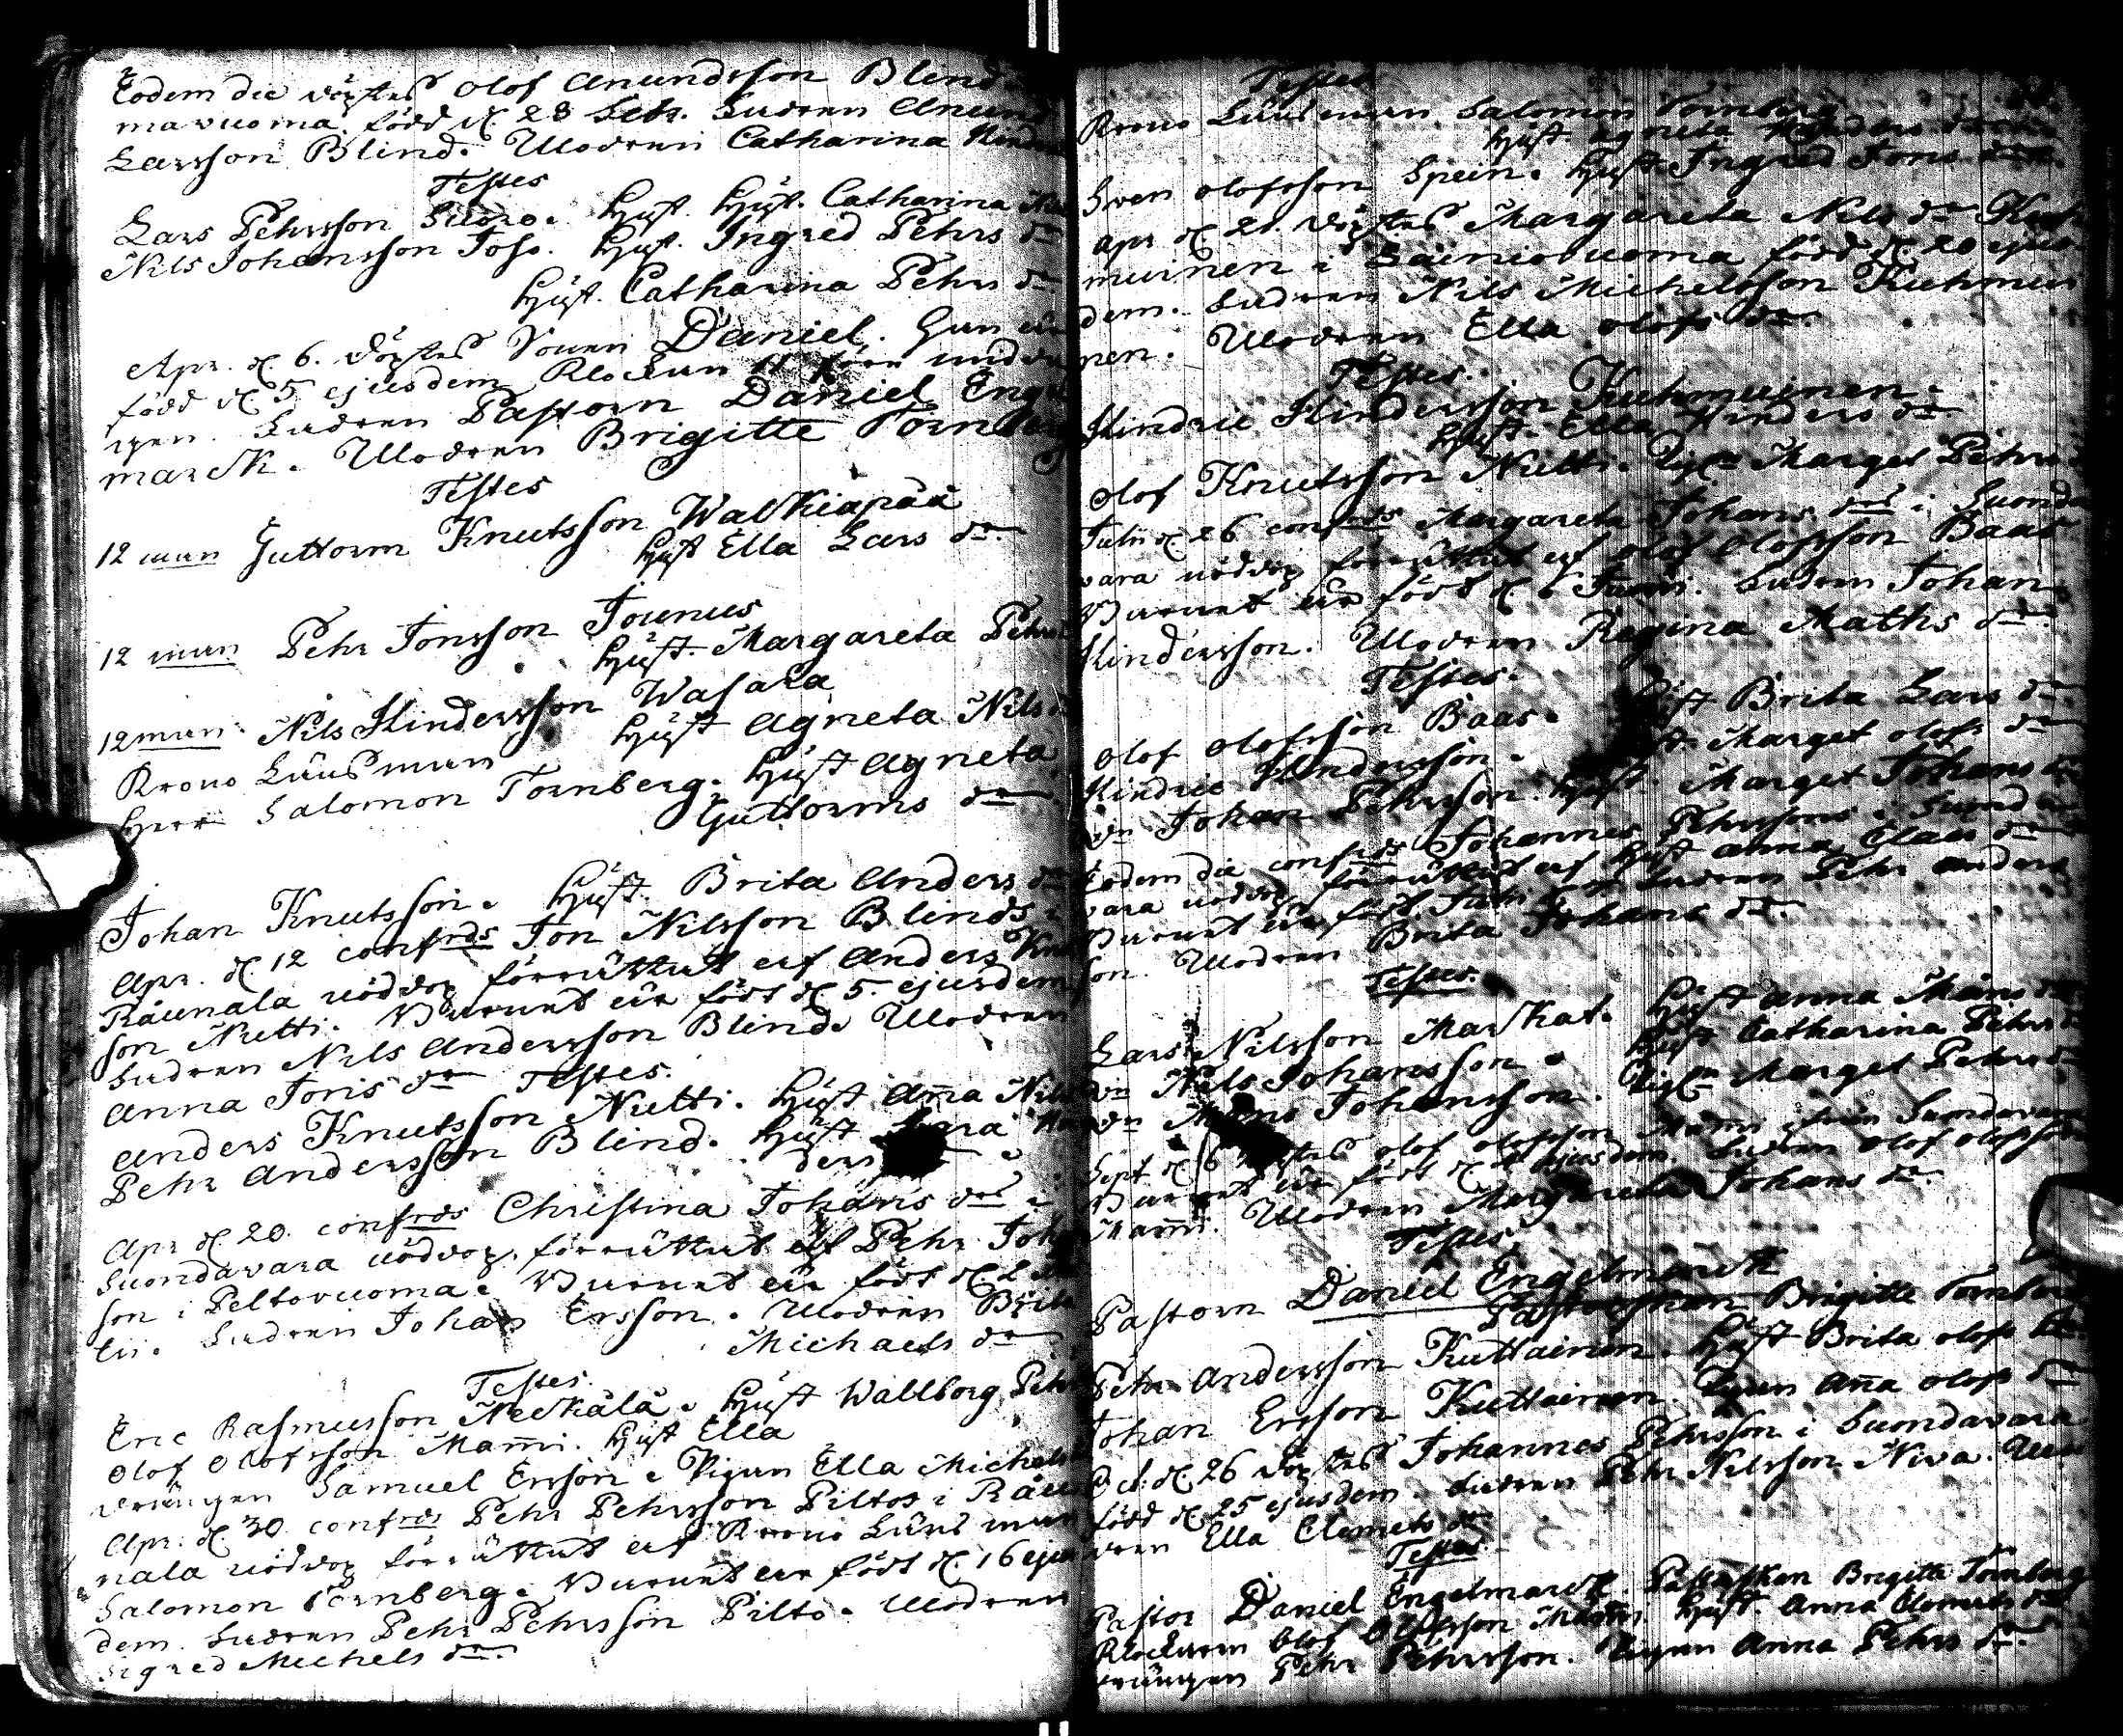 Eodem die döptes Olof Anundsson Blind
mavuoma. född d. 28 Febr. Fadren Anund
Larsson Blind. Modren Catharina Hinders
Testes
Lars Pehrsson Hust. Catharina
Nils Johansson Joso. Hust. Ingred Pehrs dr
Hust. Catharina Pehrs dr
Apr. d. 6. döptes Sonen Daniel. Han är
född d. 5 ejusdem Klockan 11 för midda
gen. Fadren Pastorn Daniel Engel
marck. Modren Brigitte Tornberg
Testes
12 man Guttorm Knutsson Walkiapää
Hust Ella Lars dr.
12 man Pehr Jonsson Jounus
Hust. Margareta Pehrs
12 man. Nils Hindersson Wasara
Hust Agneta Nils d
Krono Länsman
Herr Salomon Tornberg. Hust Agneta
Guttorms dr.
Johan Knutsson. Hust. Brita Anders dr
Apr. d. 12 confrds Jon Nilsson Blinds i
Räunala nöddop förrättat af Anders Knut
son Nutti. Barnet är födt d. 5. ejusdem
Fadren Nils Andersson Blind. Modren
Anna Jons dr Testes.
Anders Knutsson Nutti. Hust Aña Nils
Pehr Andersson Blind. Hust
ders
Apr d. 20. confrds Christina Johans drs i
Suondavara nöddop. förrättat af Pehr Johans
son i Peltovuoma. Barnet är födt d. 2
tii. Fadren Johan Ersson. Modren Brita
Michaels dr
Testes.
Eric Rasmusson Neckälä. Hust Wallborg Pehrs
Olof Olofsson Mam̃i. Hust Ella
drängen Samuel Ersson. Pigan Ella Michels
Apr. d. 30. confrds Pehr Pehrsson Piltos i Räu
nala nöddop förrättat af Krono Länsman
Salomon Tornberg. Barnet är födt d. 16 ejus
dem. Fadren Pehr Pehrsson Pilto. Modren
Sigred Michels dr.
Testes
Krono Länsman Salomon Tornberg
Hust. Agneta Guttorms
Sven Olofsson Spein. Hust. Ingred Jons dr.
Apr d. 21. döptes Margareta Nils dr Kuh
muinen i Säiniovuoma född d. 20 ejus
dem. Fadren Nils Michelsson Kuhmui
nen. Modren Ella Olofs dr.
Testes.
Hindric Hindersson Kuhmuinen.
Hust. Ella Hinders dr
Olof Knutsson Nutti. Pigan Marget Pehrs
Julii d. 26 confrds Margareta Johans drs i Suonda
vara nöddop förrättat af Olof Olofsson Baas
Barnet är födt d. 6 Junii. Fadren Johan
Hindersson. Modren Regina Maths dr.
Testes.
Olof Olofsson Baas. Hust Brita Lars dr
Hindric Hindersson. Hust. Marget Olofs dr
dn Johan Pehrsson. Hust. Marget Johans dr
Eodem die confrds Johannes Pehrssons i Suonda
vara nöddop förrättat af Hust Anna Claes dr
Barnet är födt Julii Fadren Pehr Anders
son. Modren Brita Johans dr.
Testes.
Lars Nilsson Markat. Hust Anna Måns dr
dn Nils Johansson. Hust Catharina Pehrs d
dn Måns Johansson. Pigan Marget Pehrs dr
Sept d. 6 döptes Olof Olofsson Mam̃i från Suondavara
Barnet är födt d. ejusdem. Fadren Olof Olofsson
Mam̃i. Modren Margareta Johans dr.
Testes
Pastorn Daniel Engelmarck
Pastorskan Brigitte Tornberg
Pehr Andersson Kuttainen. Hust Brita Olofs
Johan Ersson Kuttainen. Pigan Aña Olofs dr
Oct. d. 26 döptes Johannes Pehrsson i Suondavara
född d. 25 ejusdem. Fadren Pehr Nilsson Niva. Mo
dren Ella Clemets dr
Testes.
Pastor Daniel Engelmarck. Pastorskan Brigitte Tornberg
Klockaren Olof Olofsson Mam̃i. Hust. Anna Clemets dr
drängen Pehr Pehrsson. Pigan Anna Pehrs dr.